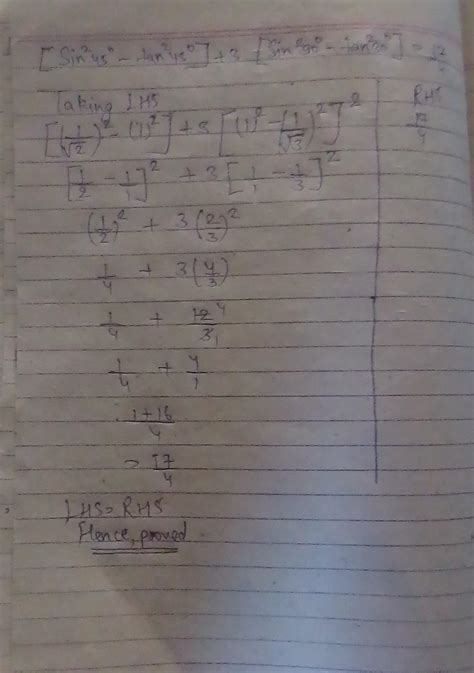 [Sin²45° - tan²45°] + 3 [Sin²90° - tan²30°] = 17/4
Taking LHS RHS
[(1/√2)² - (1)²] + 3 [(1)² - (1/√3)²]² 17/4
[1/2 - 1/1]² + 3[1/1 - 1/3]²
(1/2)² + 3(2/3)²
1/4 + 3(4/3)
1/4 + 12/3 4/1
1/4 + 4/1
1+16/4
= 17/4
LHS = RHS
Hence, proved